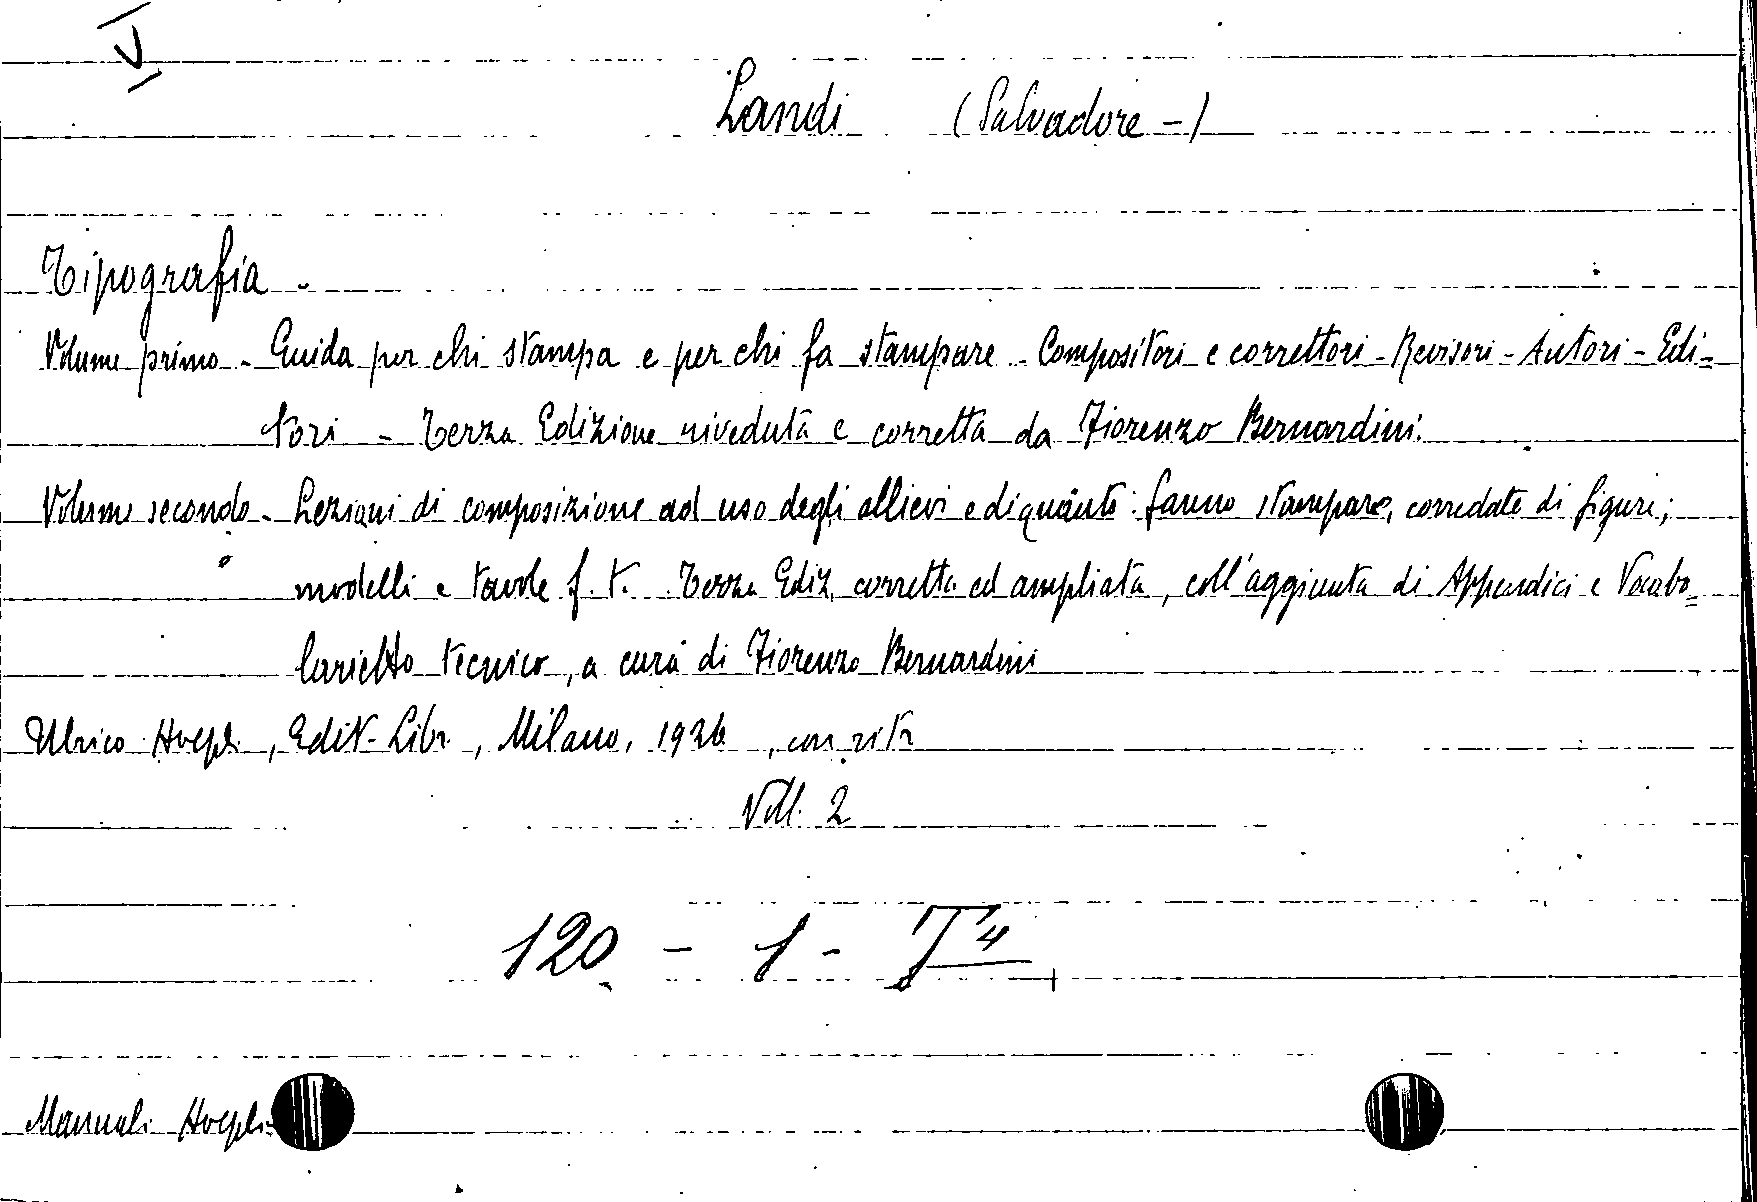 V
Landi (Salvadore -)
Tipografia -
Volume primo - Guida per chi stampa e per chi fa stampare - Compositori e correttori - Revisori - Autori - Edi=
tori - Terza Edizione riveduta e corretta da Fiorenzo Bernardini.
Volume secondo - Lezioni di composizione ad uso degli allievi e di quanti fanno stampare, corredate di figure,
modelli e tavole f. t. Terza Ediz. corretta ed ampliata, coll'aggiunta di Appendici e Vocabo=
larietto tecnico, a cura di Fiorenzo Bernardini
Ulrico Hoepli, Edit-Libr, Milano, 1926, con ritr
Voll. 2
120 - 1 - T4
Manuali Hoepli